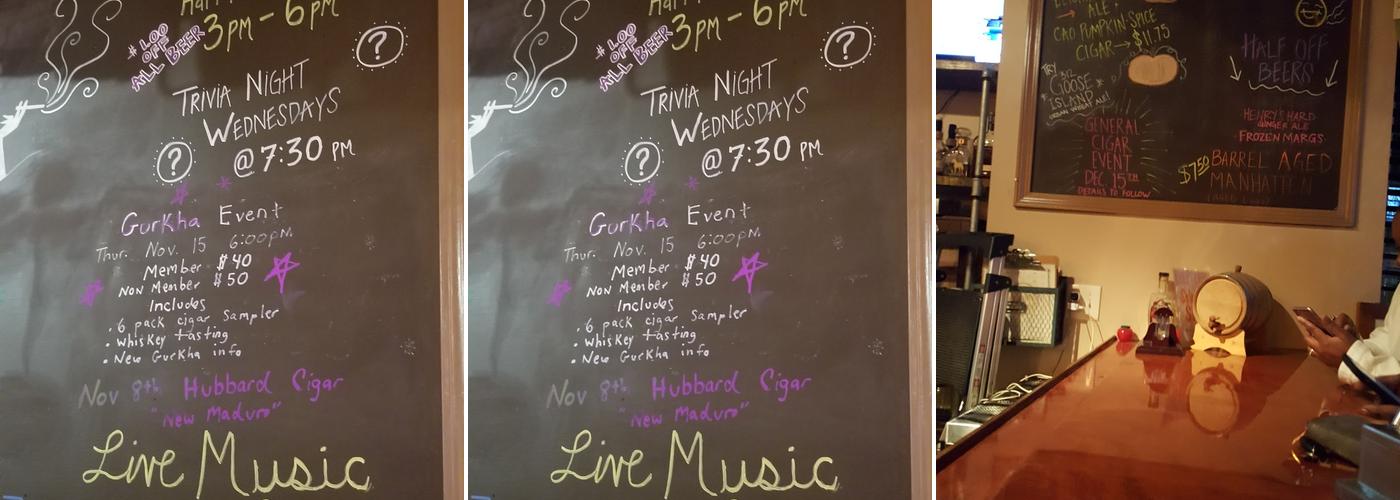 3PM - 6PM
# 1.00
OFF
ALL BEER
?
TRIVIA NIGHT
WEDNESDAYS
@ 7:30 PM
?
Gurkha Event
Thur. Nov. 15 6:00pm
Member $40
Non Member $50
Includes
• 6 pack cigar Sampler
• Whiskey tasting
• New Gurkha info
Nov 8th Hubbard Cigar
"New Maduro"
Live Music
3PM - 6PM
# 1.00
OFF
ALL BEER
?
TRIVIA NIGHT
WEDNESDAYS
@ 7:30 PM
?
Gurkha Event
Thur. Nov. 15 6:00pm
Member $40
Non Member $50
Includes
• 6 pack cigar Sampler
• Whiskey tasting
• New Gurkha info
Nov 8th Hubbard Cigar
"New Maduro"
Live Music
ALE +
CAO PUMPKIN SPICE
CIGAR → $11.75
TRY
312
GOOSE
ISLAND
URBAN WHEAT ALE!
GENERAL
CIGAR
EVENT
DEC 15TH
DETAILS TO FOLLOW
HALF OFF
BEERS
HENRY'S HARD
GINGER ALE
FROZEN MARGS
$7.50 BARREL AGED
MANHATTEN